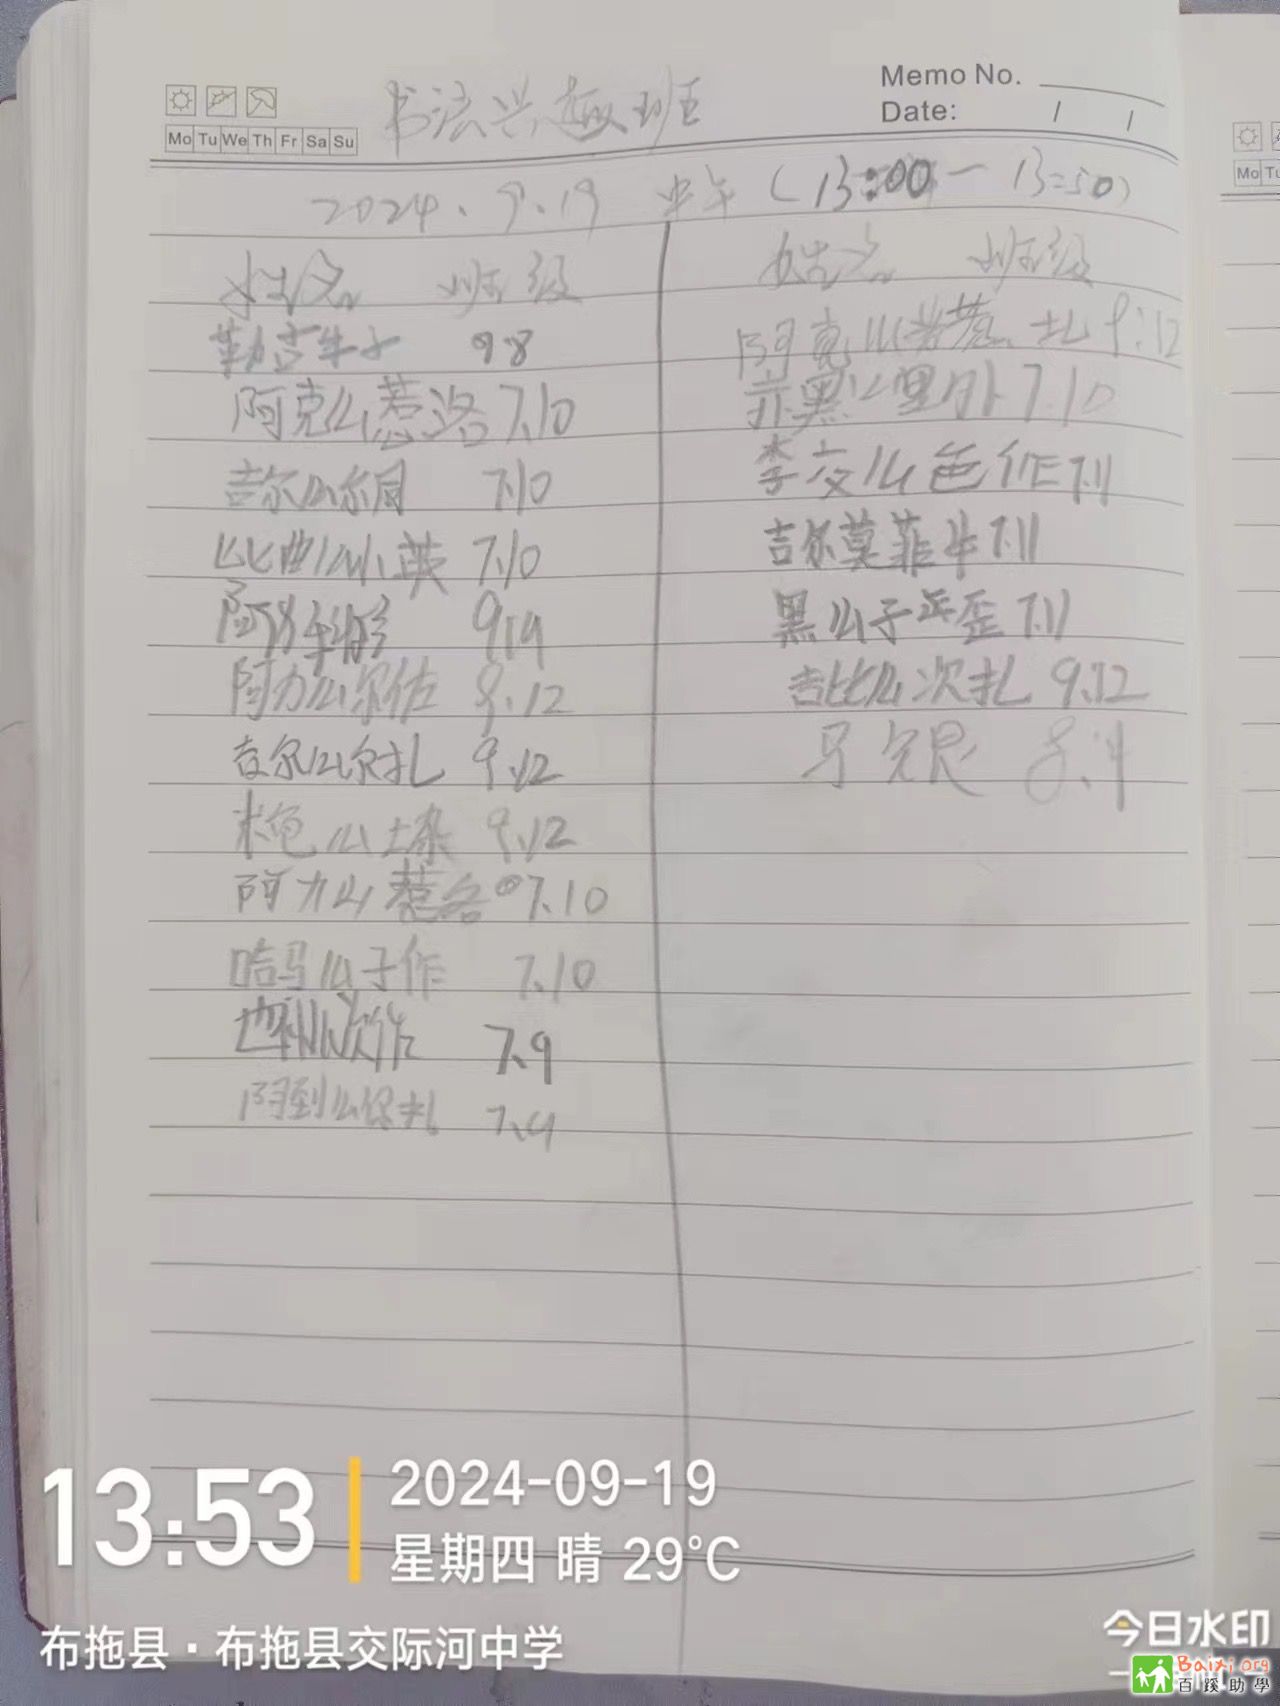 Memo No.
Date: / /
Mo Tu We Th Fr Sa Su
书法兴趣班
2024.9.19 中午 (13:00-13:50)
姓名 班级
9.8
阿克么惹洛 7.10
吉尔么尔 7.10
比曲么小英 7.10
9.14
阿力么尔佐 8.12
吉尔么尔扎 9.12
米色么土杂 9.12
阿力么惹各 7.10
哈马么子作 7.10
7.9
阿到么保扎 7.9
姓名 班级
阿克么惹扎 9.12
黑么里外 7.10
李交么色作 7.11
吉尔莫菲牛 7.11
黑么子歪 7.11
吉比么次扎 9.12
Mo Tu
13:53
2024-09-19
星期四 晴 29°C
布拖县·布拖县交际河中学
今日水印
Baixi.org
百蹊助學